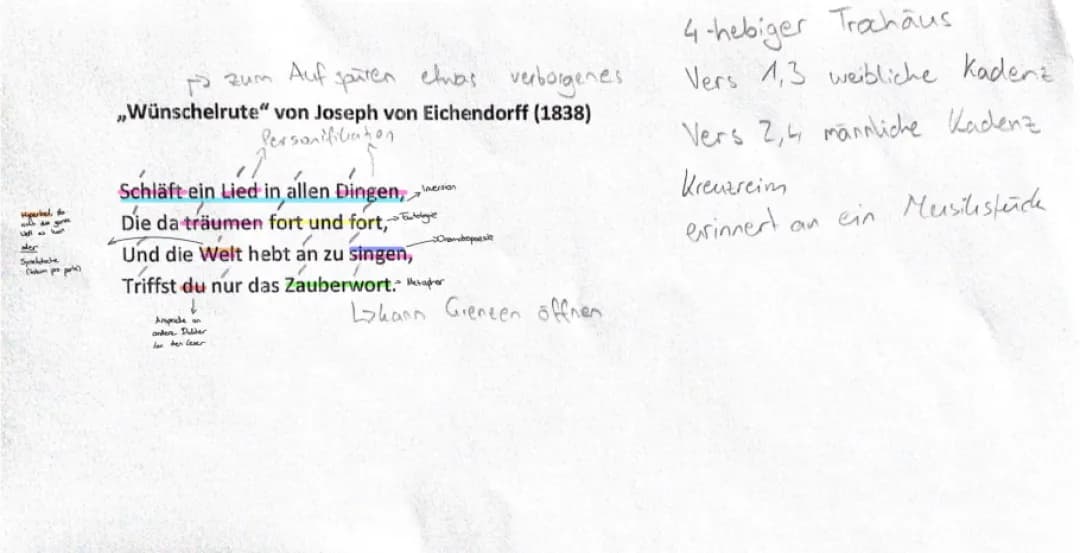 4-hebiger Trochäus
Vers 1,3 weibliche Kadenz
Vers 2,4 männliche Kadenz
Kreuzreim
erinnert an ein Musikstück
zum Aufspüren etwas verborgenes
„Wünschelrute“ von Joseph von Eichendorff (1838)
Personifikation
Schläft ein Lied in allen Dingen, → Inversion
Die da träumen fort und fort, → Tautologie
Und die Welt hebt an zu singen, → Onomatopoesie
Triffst du nur das Zauberwort. - Metapher
oder
Synekdoche
(totum pro parte)
Ansprache an
andere Dichter
den Leser
↳ kann Grenzen öffnen